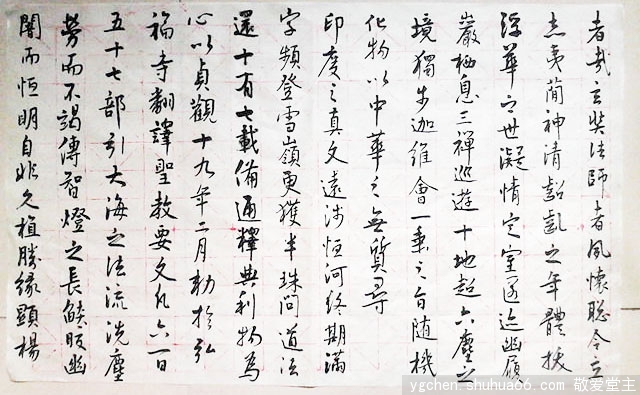 者哉玄奘法師者夙懷聰令立
志夷簡神清齠齔之年體拔
浮華之世凝情定室匿迹幽
巖栖息三禪巡遊十地超六塵之
境獨步迦維會一乘之旨随機
化物以中華之無質尋
印度之真文遠涉恒河終期滿
字頻登雪嶺更獲半珠問道往
還十有七載備通釋典利物為
心以貞觀十九年二月勅於弘
福寺翻譯聖教要文凡六百
五十七部引大海之法流洗塵
勞而不竭傳智燈之長燄皎幽
闇而恒明自非久植勝緣顯楊
ygchen.shuhua66.com 敬爱堂主